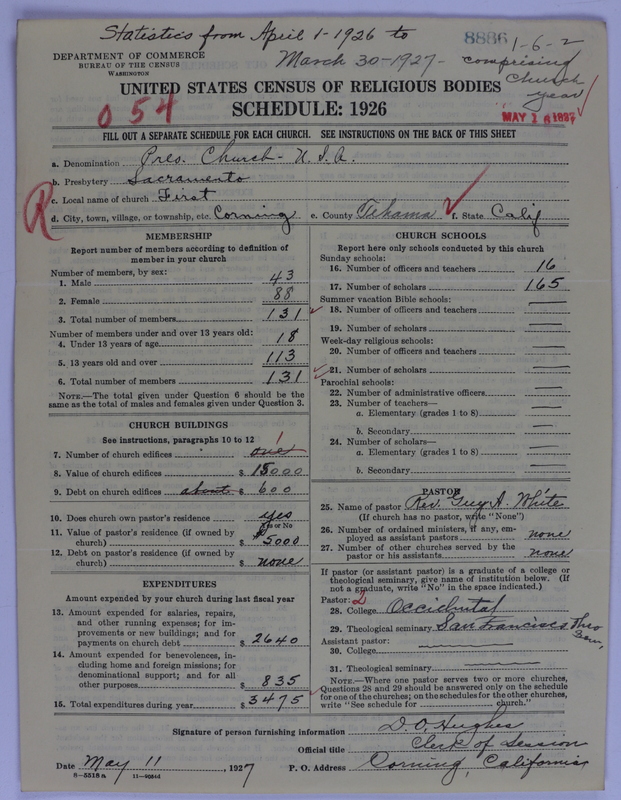 Statistics from April 1-1926 to
March 30-1927-
8886 1-6-2
comprising
Church
year
DEPARTMENT OF COMMERCE
BUREAU OF THE CENSUS
WASHINGTON
UNITED STATES CENSUS OF RELIGIOUS BODIES
SCHEDULE: 1926
054
MAY 1 1927
FILL OUT A SEPARATE SCHEDULE FOR EACH CHURCH. SEE INSTRUCTIONS ON THE BACK OF THIS SHEET
a. Denomination Pres. Church - U.S.A.
b. Presbytery Sacramento
c. Local name of church First
R
d. City, town, village, or township, etc. Corning e. County Tehama f. State Calif
MEMBERSHIP
Report number of members according to definition of
member in your church
Number of members, by sex:
1. Male 43
2. Female 88
3. Total number of members 131
Number of members under and over 13 years old:
4. Under 13 years of age 18
5. 13 years old and over 113
6. Total number of members 131
NOTE.—The total given under Question 6 should be the
same as the total of males and females given under Question 3.
CHURCH BUILDINGS
See instructions, paragraphs 10 to 12
7. Number of church edifices one 1
8. Value of church edifices $ 15000
9. Debt on church edifices about $ 600
10. Does church own pastor's residence yes
Yes or No
11. Value of pastor's residence (if owned by
church) $ 5000
12. Debt on pastor's residence (if owned by
church) $ none
EXPENDITURES
Amount expended by your church during last fiscal year
13. Amount expended for salaries, repairs,
and other running expenses; for im-
provements or new buildings; and for
payments on church debt $ 2640
14. Amount expended for benevolences, in-
cluding home and foreign missions; for
denominational support; and for all
other purposes $ 835
15. Total expenditures during year $ 3475
CHURCH SCHOOLS
Report here only schools conducted by this church
Sunday schools:
16. Number of officers and teachers 16
17. Number of scholars 165
Summer vacation Bible schools:
18. Number of officers and teachers
19. Number of scholars
Week-day religious schools:
20. Number of officers and teachers
21. Number of scholars
Parochial schools:
22. Number of administrative officers
23. Number of teachers—
a. Elementary (grades 1 to 8)
b. Secondary
24. Number of scholars—
a. Elementary (grades 1 to 8)
b. Secondary
PASTOR
25. Name of pastor Rev. Guy A. White
(If church has no pastor, write "None")
26. Number of ordained ministers, if any, em-
ployed as assistant pastors none
27. Number of other churches served by the
pastor or his assistants none
If pastor (or assistant pastor) is a graduate of a college or
theological seminary, give name of institution below. (If
not a graduate, write "No" in the space indicated.)
Pastor: 2
28. College Occidental
29. Theological seminary San Francisco Theo
Sem.
Assistant pastor:
30. College
31. Theological seminary
NOTE.—Where one pastor serves two or more churches,
Questions 28 and 29 should be answered only on the schedule
for one of the churches; on the schedules for the other churches,
write "See schedule for church."
Signature of person furnishing information D.O. Hughes
Official title Clerk of Session
Date May 11, 1927 P. O. Address Corning, California
8—5518 a